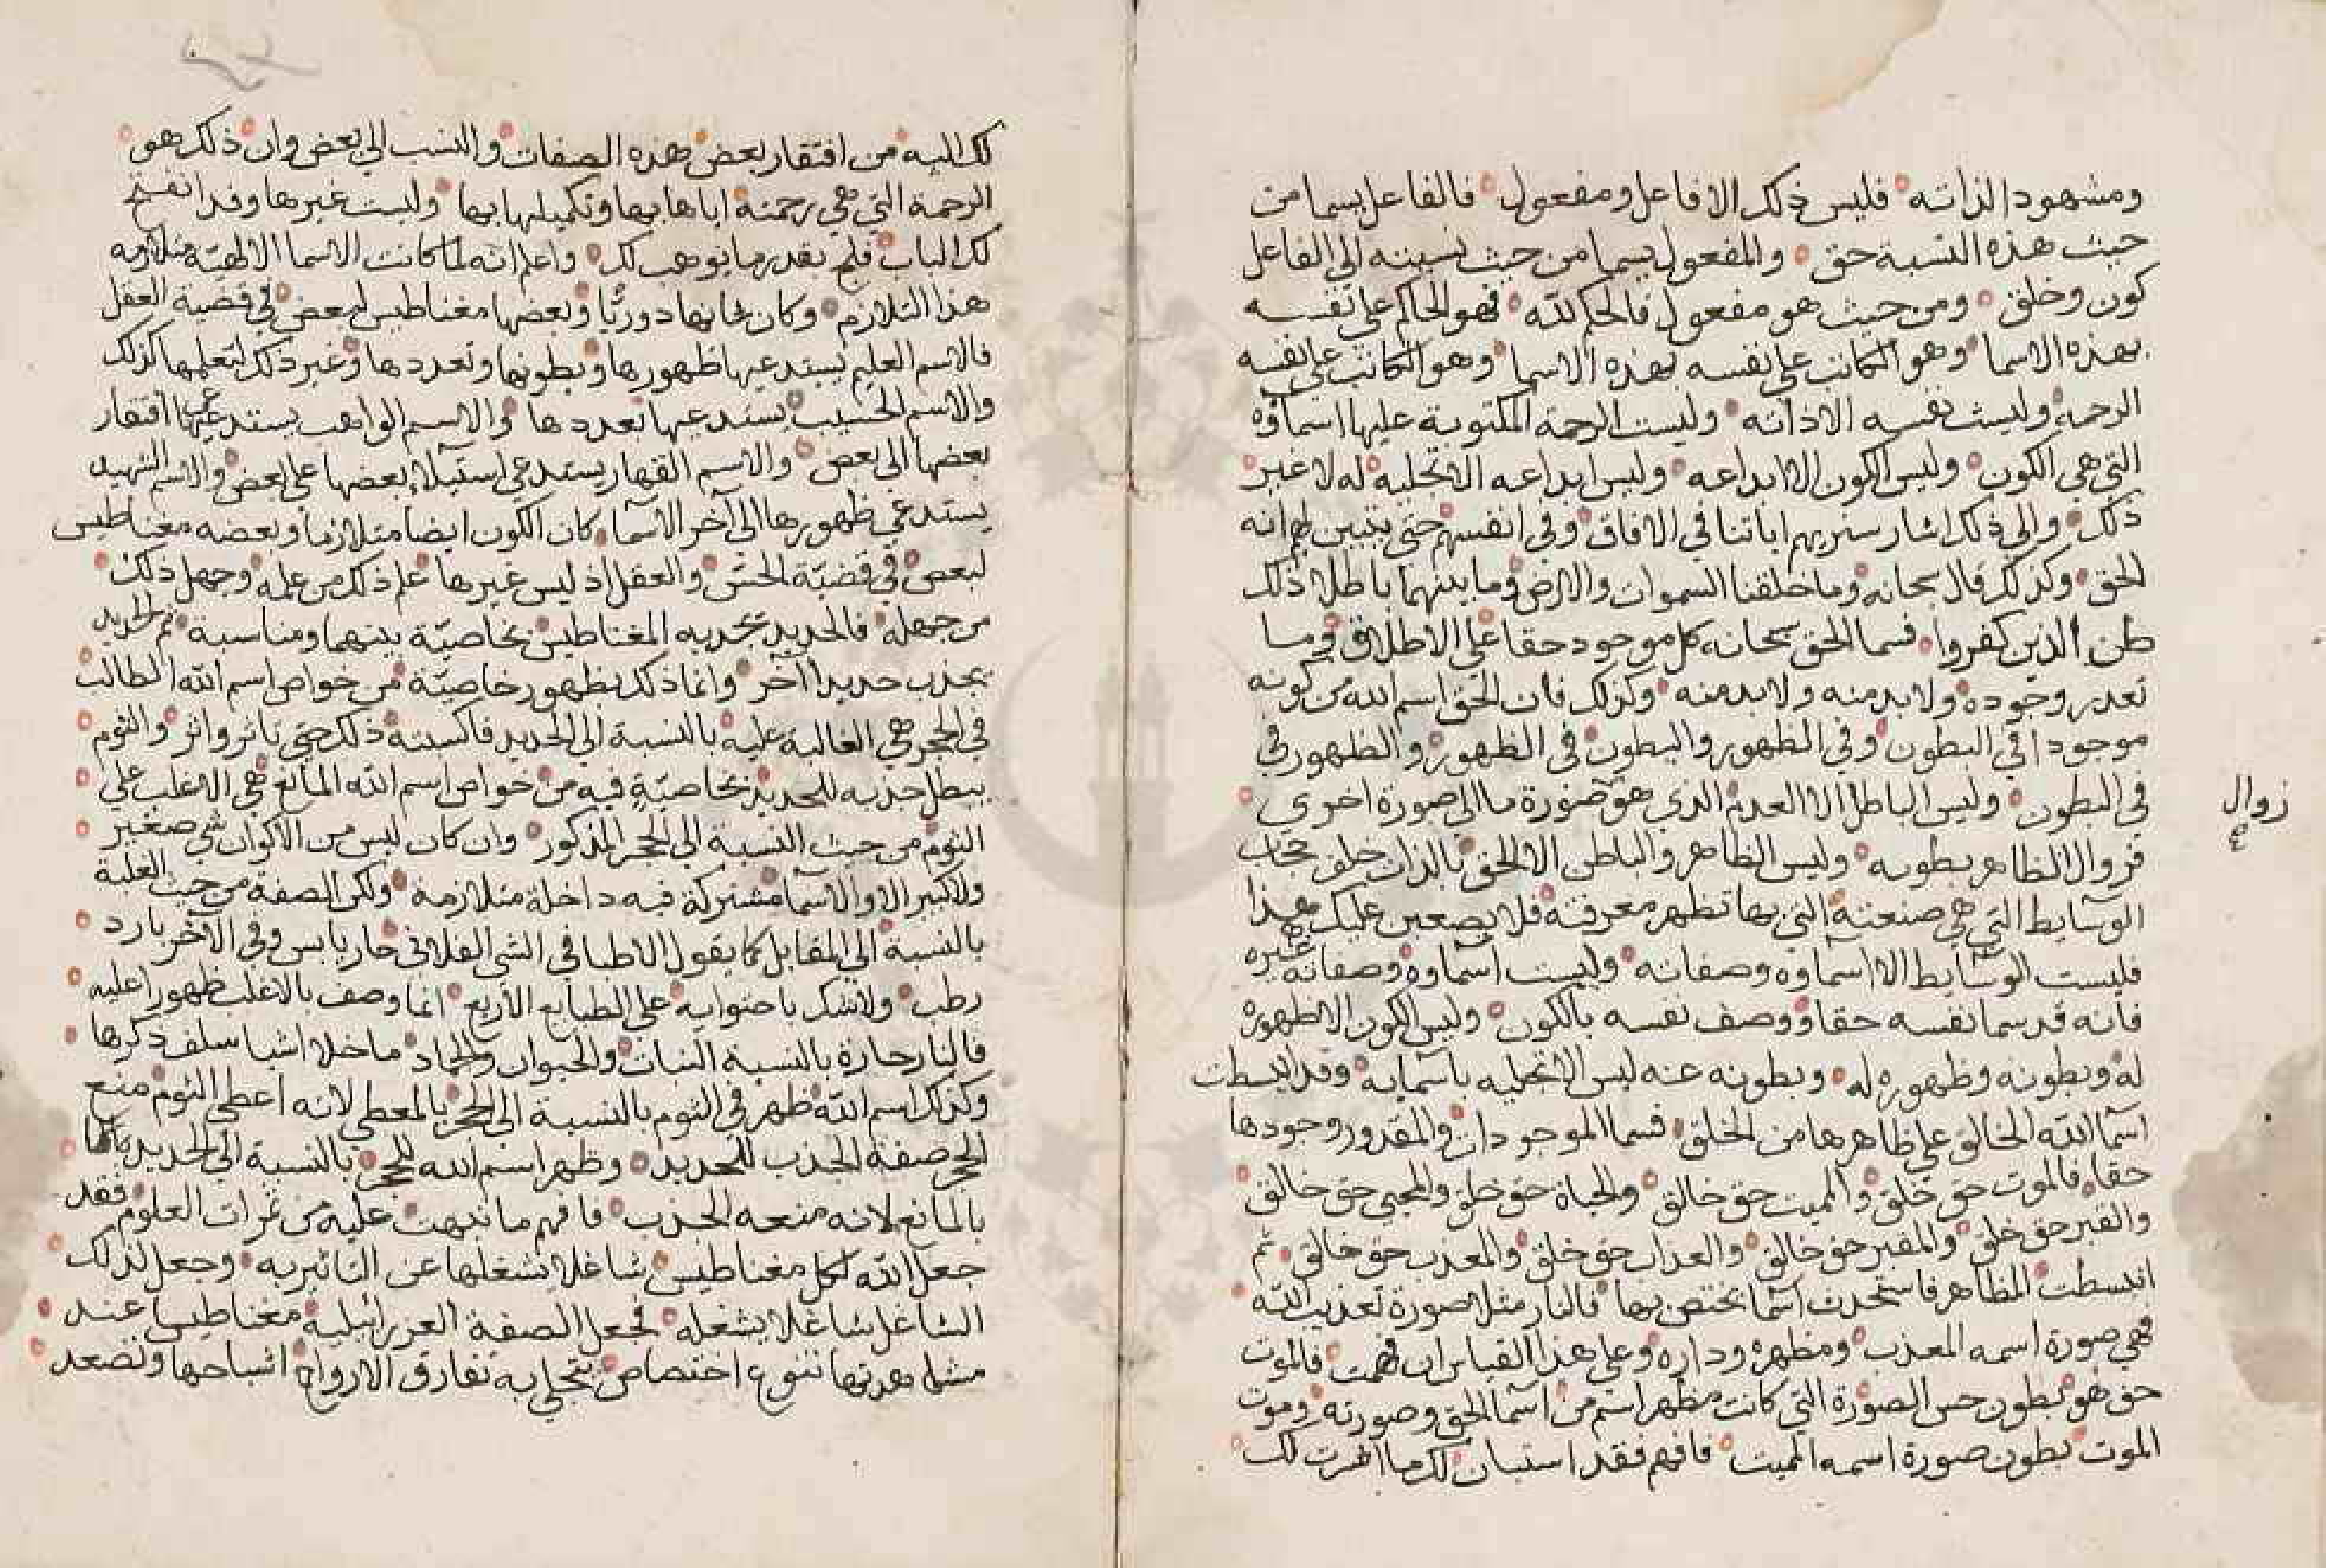 ومشهودا لذاته فليس ذلك الا فاعل ومفعول فالفاعل يسما من
حيث هذه النسبة حق والمفعول يسما من حيث نسبته الى الفاعل
كون وخلق ومن حيث هو مفعول فالحكم لله فهو الحاكم على نفسه
بهذه الاسما وهو الكاتب على نفسه بهذه الاسما وهو الكاتب على نفسه
الرحمة وليست نفسه الا ذاته وليست الرحمة المكتوبة عليها اسماؤه
التي هي الكون وليس الكون الا ابداعه وليس ابداعه الا تجليه له لا غير
ذلك والى ذلك اشار سنريهم اياتنا في الافاق وفي انفسهم حتى يتبين لهم انه
الحق وكذلك قال سبحانه وما خلقنا السموات والارض وما بينهما باطلا ذلك
ظن الذين كفروا فسما الحق سبحانه كل موجود حقا على الاطلاق في ما
تعدر وجوده ولا بد منه ولا بد منه وكذلك فان الحق اسم الله من كونه
موجودا في البطون وفي الظهور والبطون في الظهور والظهور في
في البطون وليس الباطل الا العدم الذي هو صورة ما الى صورة اخرى
زوال
فزوال الظاهر بطونه وليس الظاهر والباطن الا الحق بالذات خلق حجاب
الوسايط التي هي صنعته التي بها تظهر معرفته فلا يصعبن عليك هذا
فليست الوسايط الا اسماوه وصفاته وليست اسماوه وصفاته غيره
فانه قد سما نفسه حقا ووصف نفسه بالكون وليس الكون الا ظهوره
له وبطونه وظهوره له وبطونه عنه ليس الا تجليه باسمايه وقد انبسطت
اسما الله الخالق على ظاهرها من الخلق فسما الموجودات والمقدور وجودها
حقا فالموت حق خلق والمميت حق خالق والحياة حق خلق والمحيي حق خالق
والقبر حق خلق والمقبر حق خالق والعذاب حق خلق والمعذب حق خالق ثم
انبسطت المظاهر فاستحدث اسما يختص بها فالنار مثلا صورة تعذيب الله
فهي صورة اسمه المعذب ومظهره وداره وعلى هذا القياس ان فهمت فالموت
حق هو بطون حس الصورة التي كانت مظهر اسم من اسما الحق وصورته وموت
الموت بطون صورة اسمه المميت فافهم فقد استبان لك ما اشرت لك
لك اليه من افتقار بعض هذه الصفات والنسب الى بعض وان ذلك هو
الرحمة التي هي رحمته اياها بها وتكميلها بها وليست غيرها وقد انفتح
لك الباب فلج بقدر ما يوهب لك واعلم انه لما كانت الاسما الالهية متلازمه
هذا التلازم وكان دوريا وبعضها مغناطيس لبعض في قضية العقل
فالاسم العليم يستدعيها ظهورها وبطونها وتعددها وغير ذلك لتعلمها كذلك
والاسم الحسيب يستدعيها تعددها والاسم الواهب يستدعي افتقار
بعضها الى بعض والاسم القهار يستدعي استيلاء بعضها على بعض والاسم الشهيد
يستدعي ظهورها الى آخر الاسما كان الكون ايضا متلازما وبعضه مغناطيس
لبعض في قضية الحس والعقل اذ ليس غيرها علم ذلك من علمه وجهل ذلك
من جهله فالحديد يجذبه المغناطيس بخاصية بينهما ومناسبة ثم الحديد
يجذب حديدا آخر وانما ذلك بظهور خاصية من خواص اسم الله الطالب
في الحجر هي الغالبة عليه بالنسبة الى الحديد فاكسبته ذلك حتى تاثر واثر والثوم
يبطل جذبه للحديد بخاصية فيه من خواص اسم الله المانع هي الاغلب على
الثوم من حيث النسبة الى الحجر المذكور وان كان ليس من الاكوان شي صغير
ولا كبير الا والاسما مشتركة فيه داخلة متلازمة ولكن الصفة من حيث الغلبة
بالنسبة الى المقابل كما يقول الاطبا في الشي الفلاني حار يابس وفي الآخر بارد
رطب ولا شك باحتوايه على الطبايع الاربع انما وصف بالاغلب ظهورا عليه
فالنار حارة بالنسبة النبات والحيوان والجماد ما خلا اشيا سلف ذكرها
وكذلك اسم الله ظهر في الثوم بالنسبة الى الحجر بالمعطي لانه اعطى الثوم منع
الحجر صفة الجذب للحديد وظهر اسم الله للحجر بالنسبة الى الحديد
بالمانع لانه منعه الجذب فافهم ما نبهت عليه من ثمرات العلوم فقد
جعل الله لكل مغناطيس شاغلا يشغلها عن التاثير به وجعل لذلك
الشاغل شاغلا يشغله فجعل الصفة العزرائيلية مغناطيسا عند
تنوع اختصاص يتجلى به تفارق الارواح اشباحها وتصعد